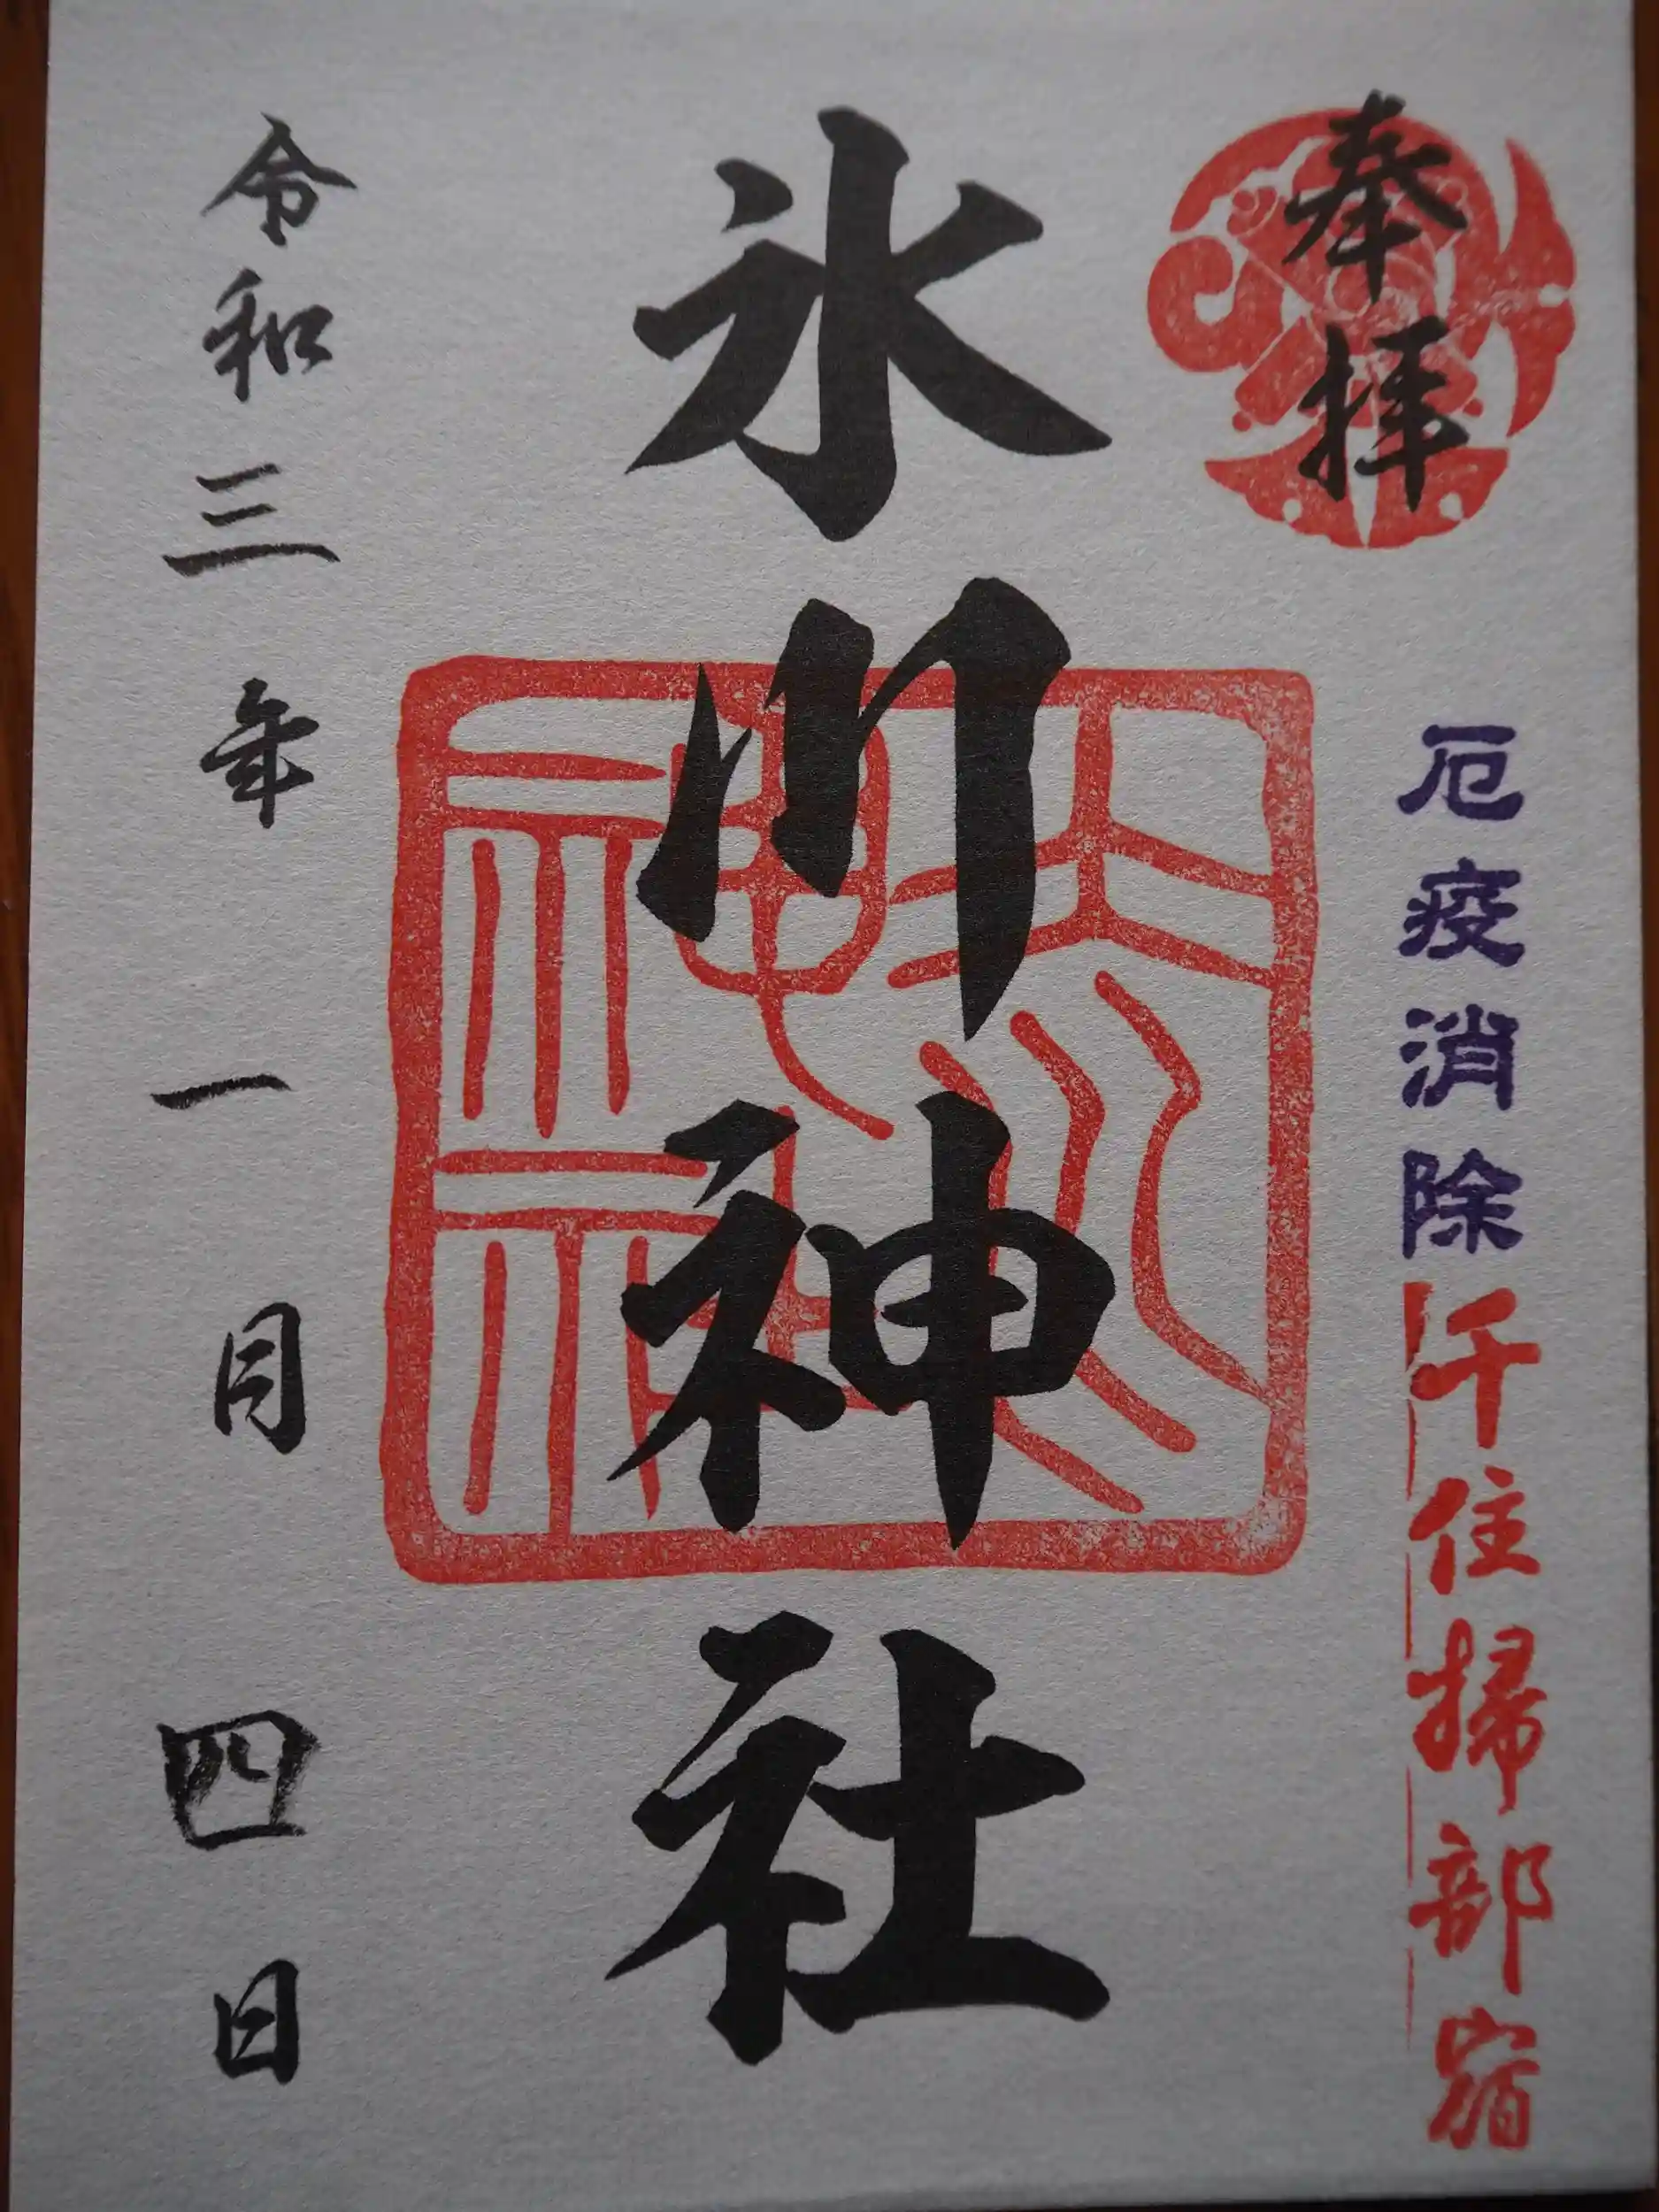 奉拝
厄疫消除
千住掃部宿
氷川神社
氷川神社
令和三年一月四日